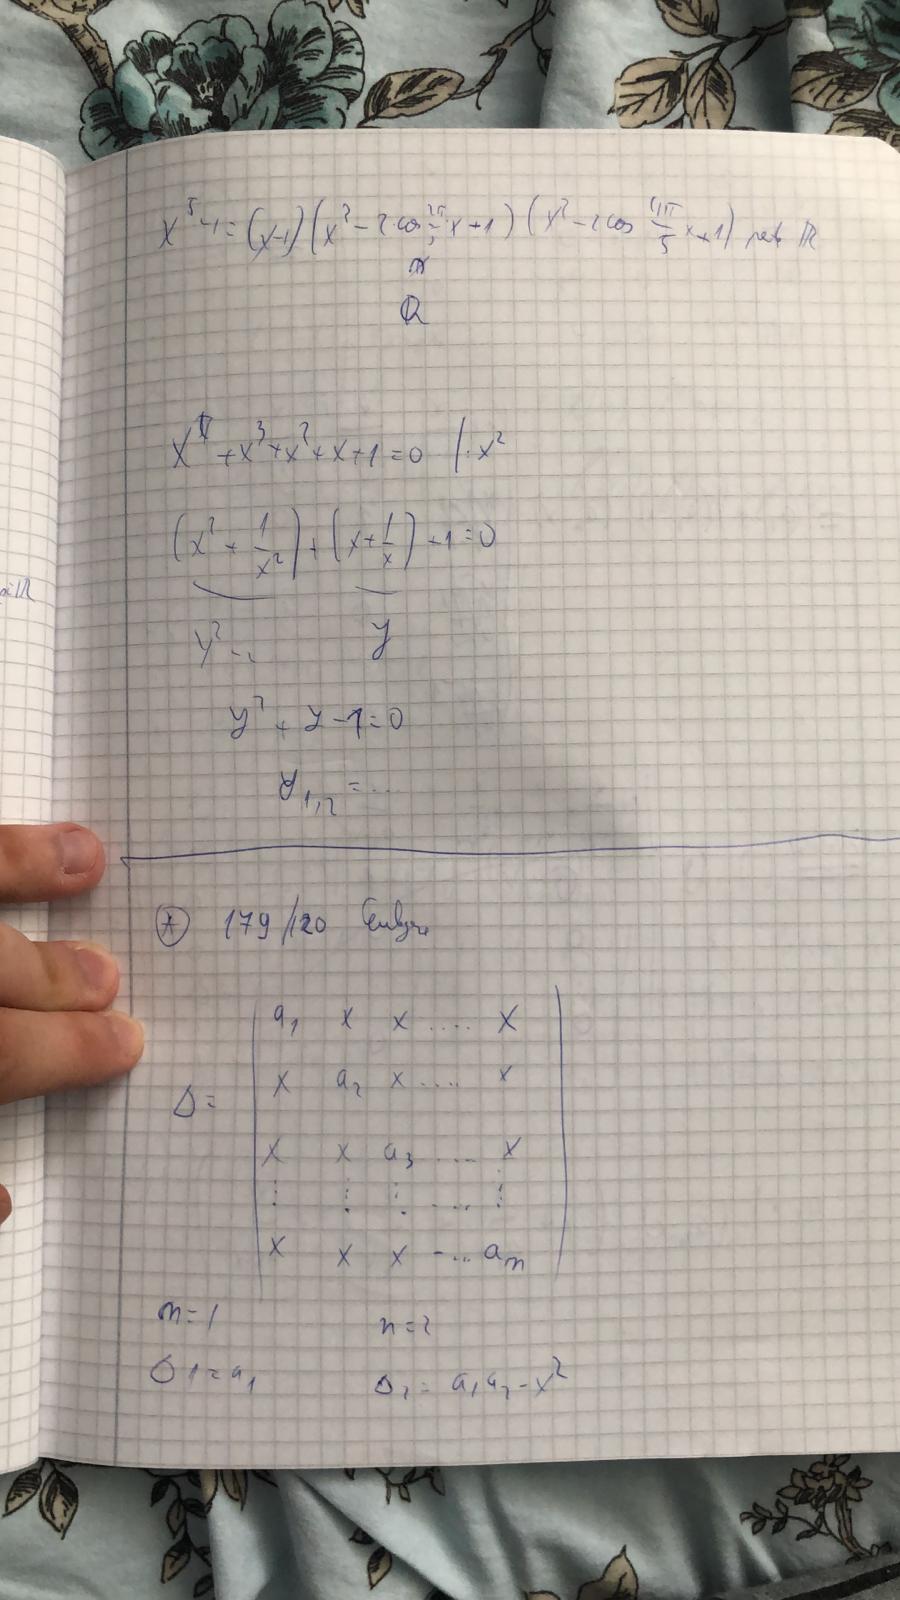 x⁵-1=(x-1)(x²-2cos 2π/5 x+1)(x²-2cos 4π/5 x+1) ℝ
Q
x⁴+x³+x²+x+1=0 /·x²
(x²+1/x²)+(x+1/x)+1=0
y²-2 y
y²+y-1=0
y₁,₂=...
* 179/120
a₁ x x .... x
x a₂ x .... x
Δ=
x x a₃ .... x
⋮ ⋮ ⋮ .... ⋮
x x x .... aₙ
n=1 n=2
Δ1=a₁ Δ₂=a₁a₂-x²